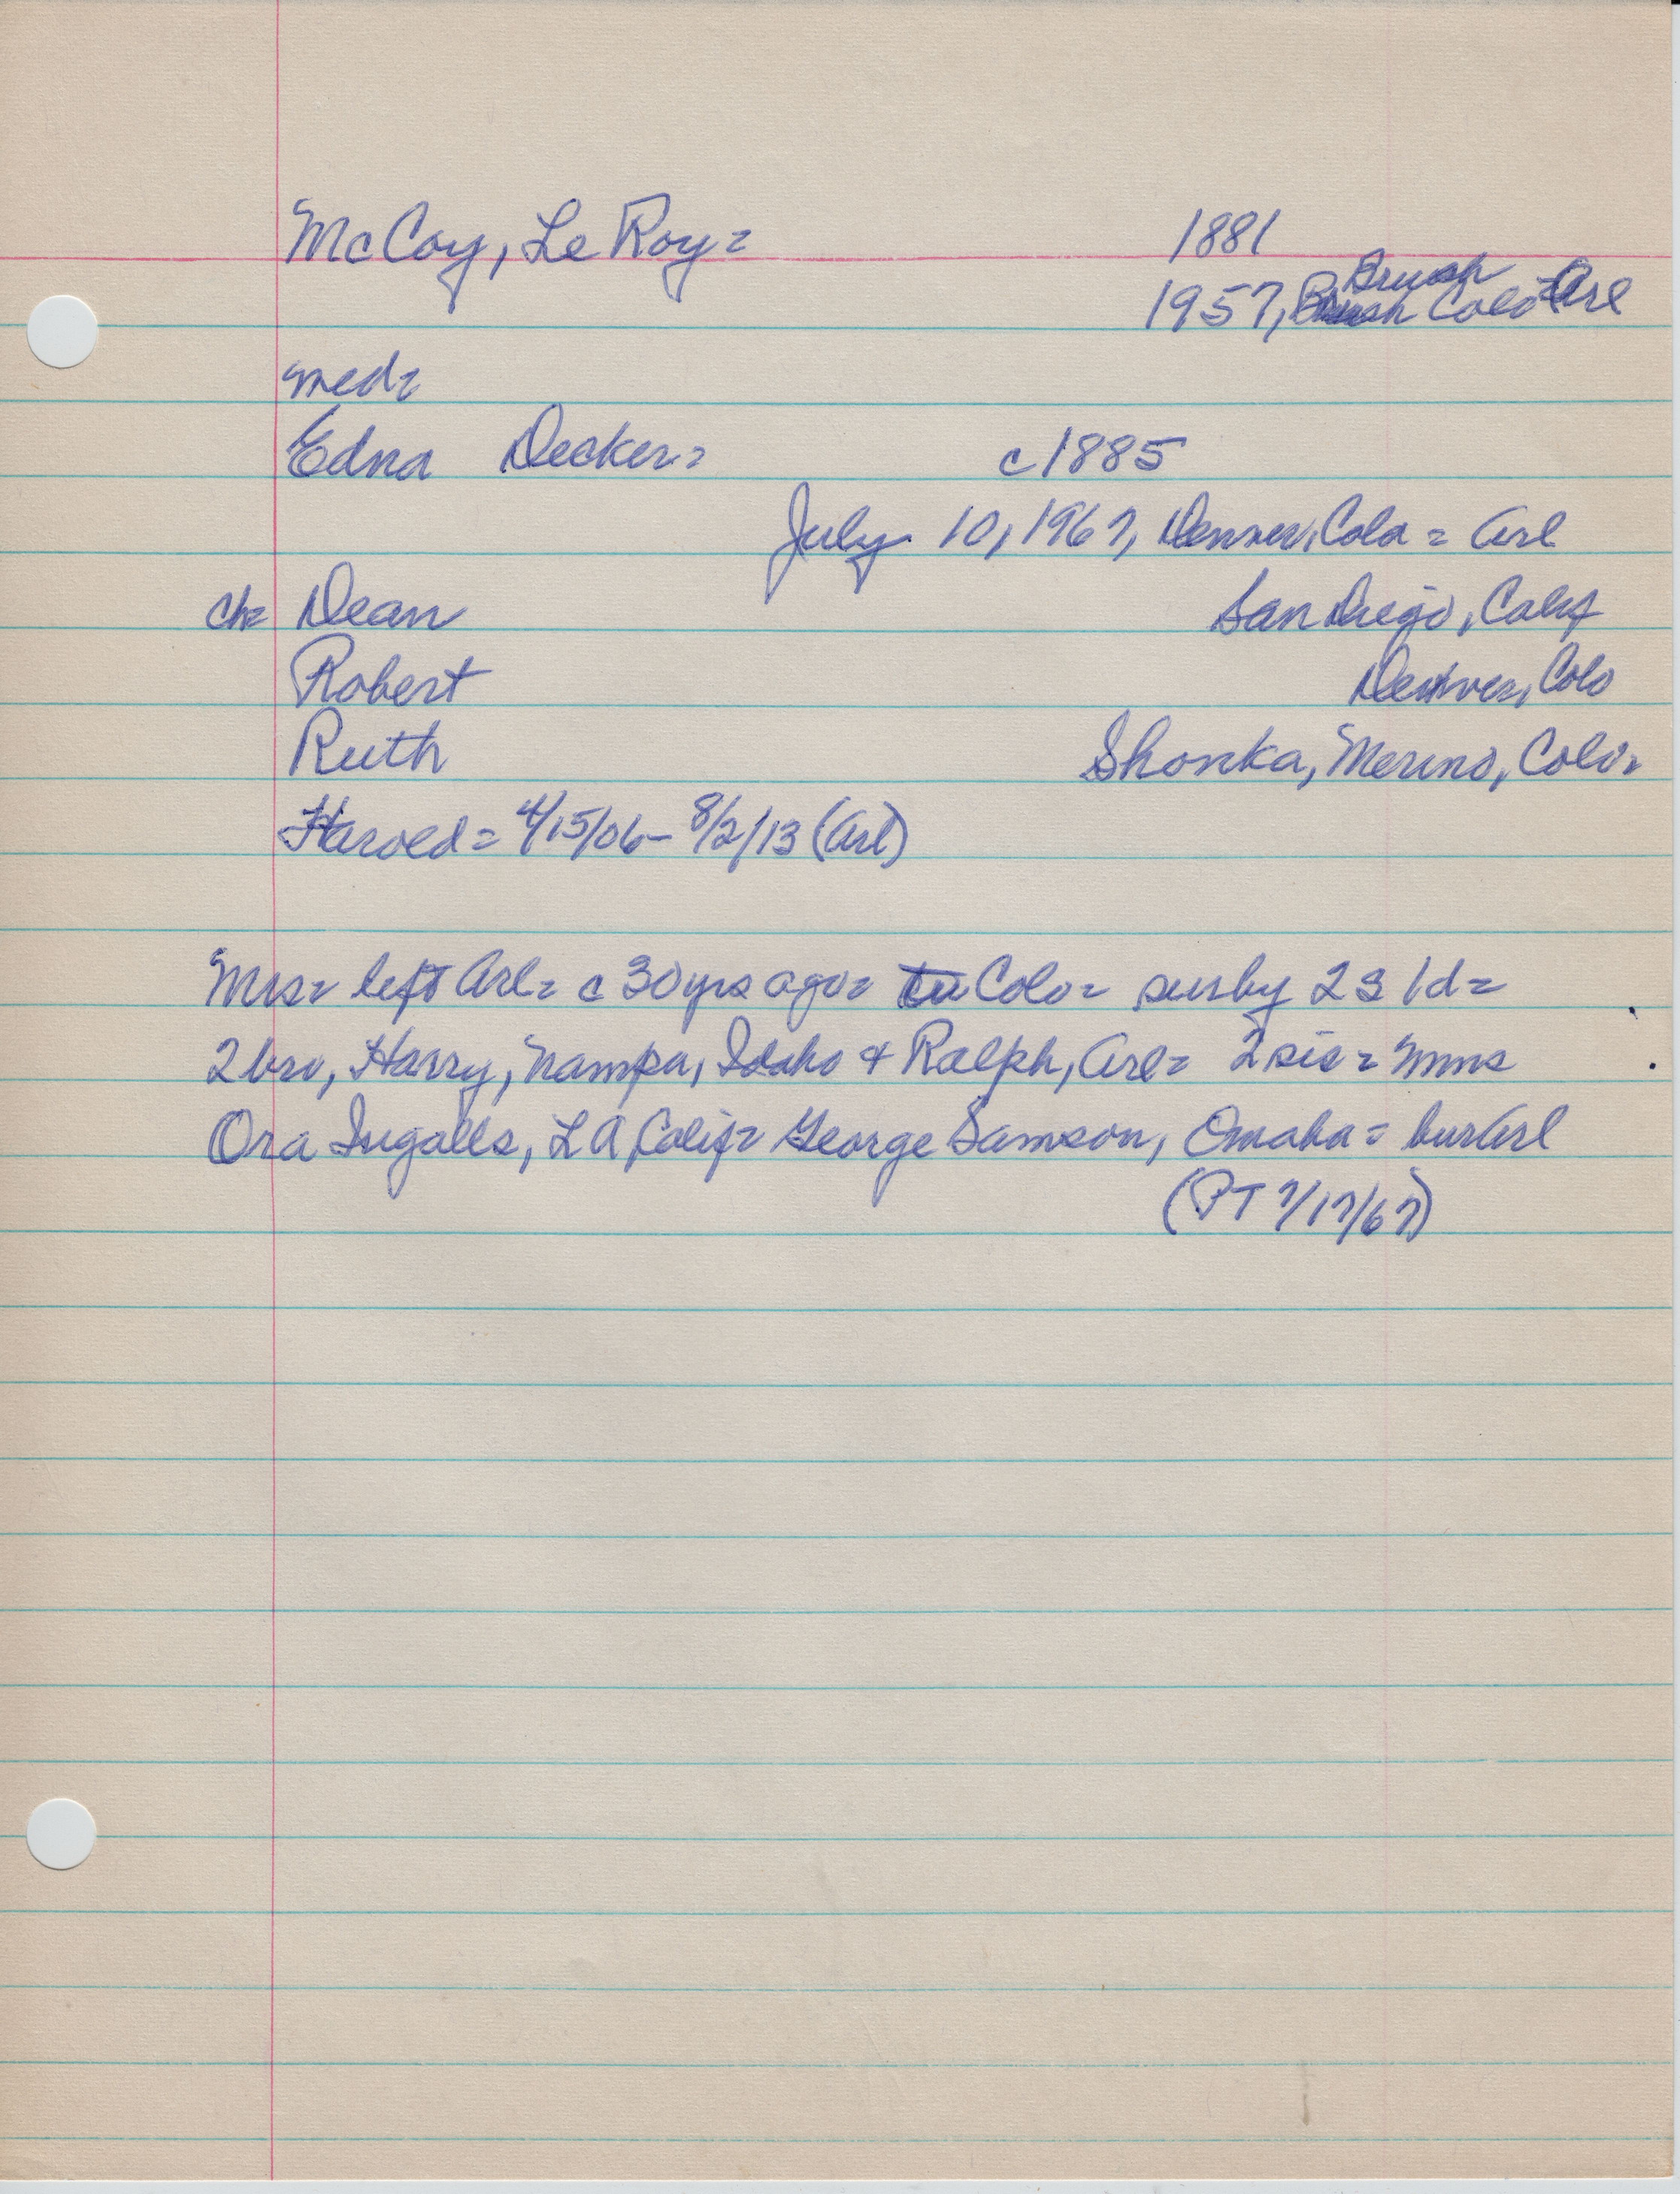 McCoy, Le Roy = 1881
Brush
1957, Brush Colo = Arl
med=
Edna Decker = c1885
July 10, 1967, Denver, Colo = Arl
ch= Dean San Diego, Calif
Robert Denver, Colo
Ruth Shonka, Merino, Colo =
Harold = 4/15/06 - 8/2/13 (Arl)
Mrs = left Arl = c 30 yrs ago = to Colo = surby 2s 1d =
2 bro, Harry, Nampa, Idaho & Ralph, Arl = 2 sis = Mms
Ora Ingalls, LA Calif = George Samson, Omaha = bur Arl
(PT 7/17/67)